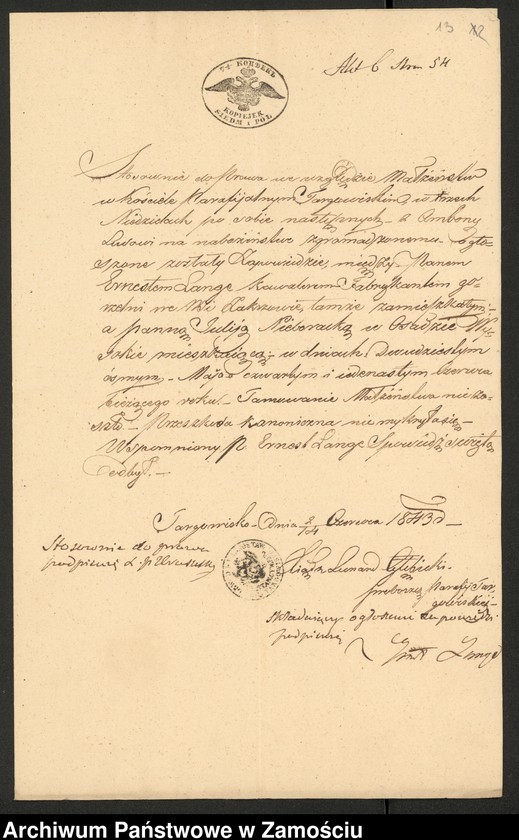 13 12
Akt 6 Nrm 54
74 KOPIEJEK
KOPIEJEK
SIEDM I PÓŁ
Stosownie do prawa we względzie Małżeństw
w Kościele Parafijalnym Targowiskim, w trzech
Niedzielach po sobie następnych - z Ambony
Ludowi na nabożeństwo zgromadzonemu - ogło-
szone zostały Zapowiedzie, między - Panem
Ernestem Lange Kawalerem Fabrykantem go-
rzelni we Wsi Zakrzowie, tamże zamieszkałym -
a panną Juliją w Osadzie
mieszkającą - w dniach Dwudziestym
ósmym - Maja - czwartym i jedenastym Czerwca
bieżącego roku. - Tamowanie Małżeństwa nie za-
szło. - Przeszkoda kanoniczna nie wykryła się. -
Wspomniony P. Ernest Lange Spowiedź
odbył. -
Targowisko - Dnia 2/14 Czerwca 1843 -
Stosownie do prawa
podpisuję
Xiądz Leonard
proboszcz Parafij Tar-
gowiskiej -
ogłoszeni zapowiedzi
podpisuję
Lange
Archiwum Państwowe w Zamościu